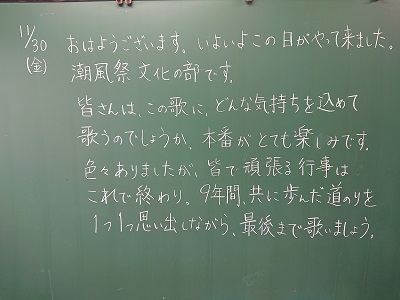 11/30 おはようございます。いよいよこの日がやって来ました。
(金) 潮風祭文化の部です。
皆さんは、この歌に、どんな気持ちを込めて
歌うのでしょうか、本番がとても楽しみです。
色々ありましたが、皆で頑張る行事は
これで終わり。9年間、共に歩んだ道のりを
1つ1つ思い出しながら、最後まで歌いましょう。